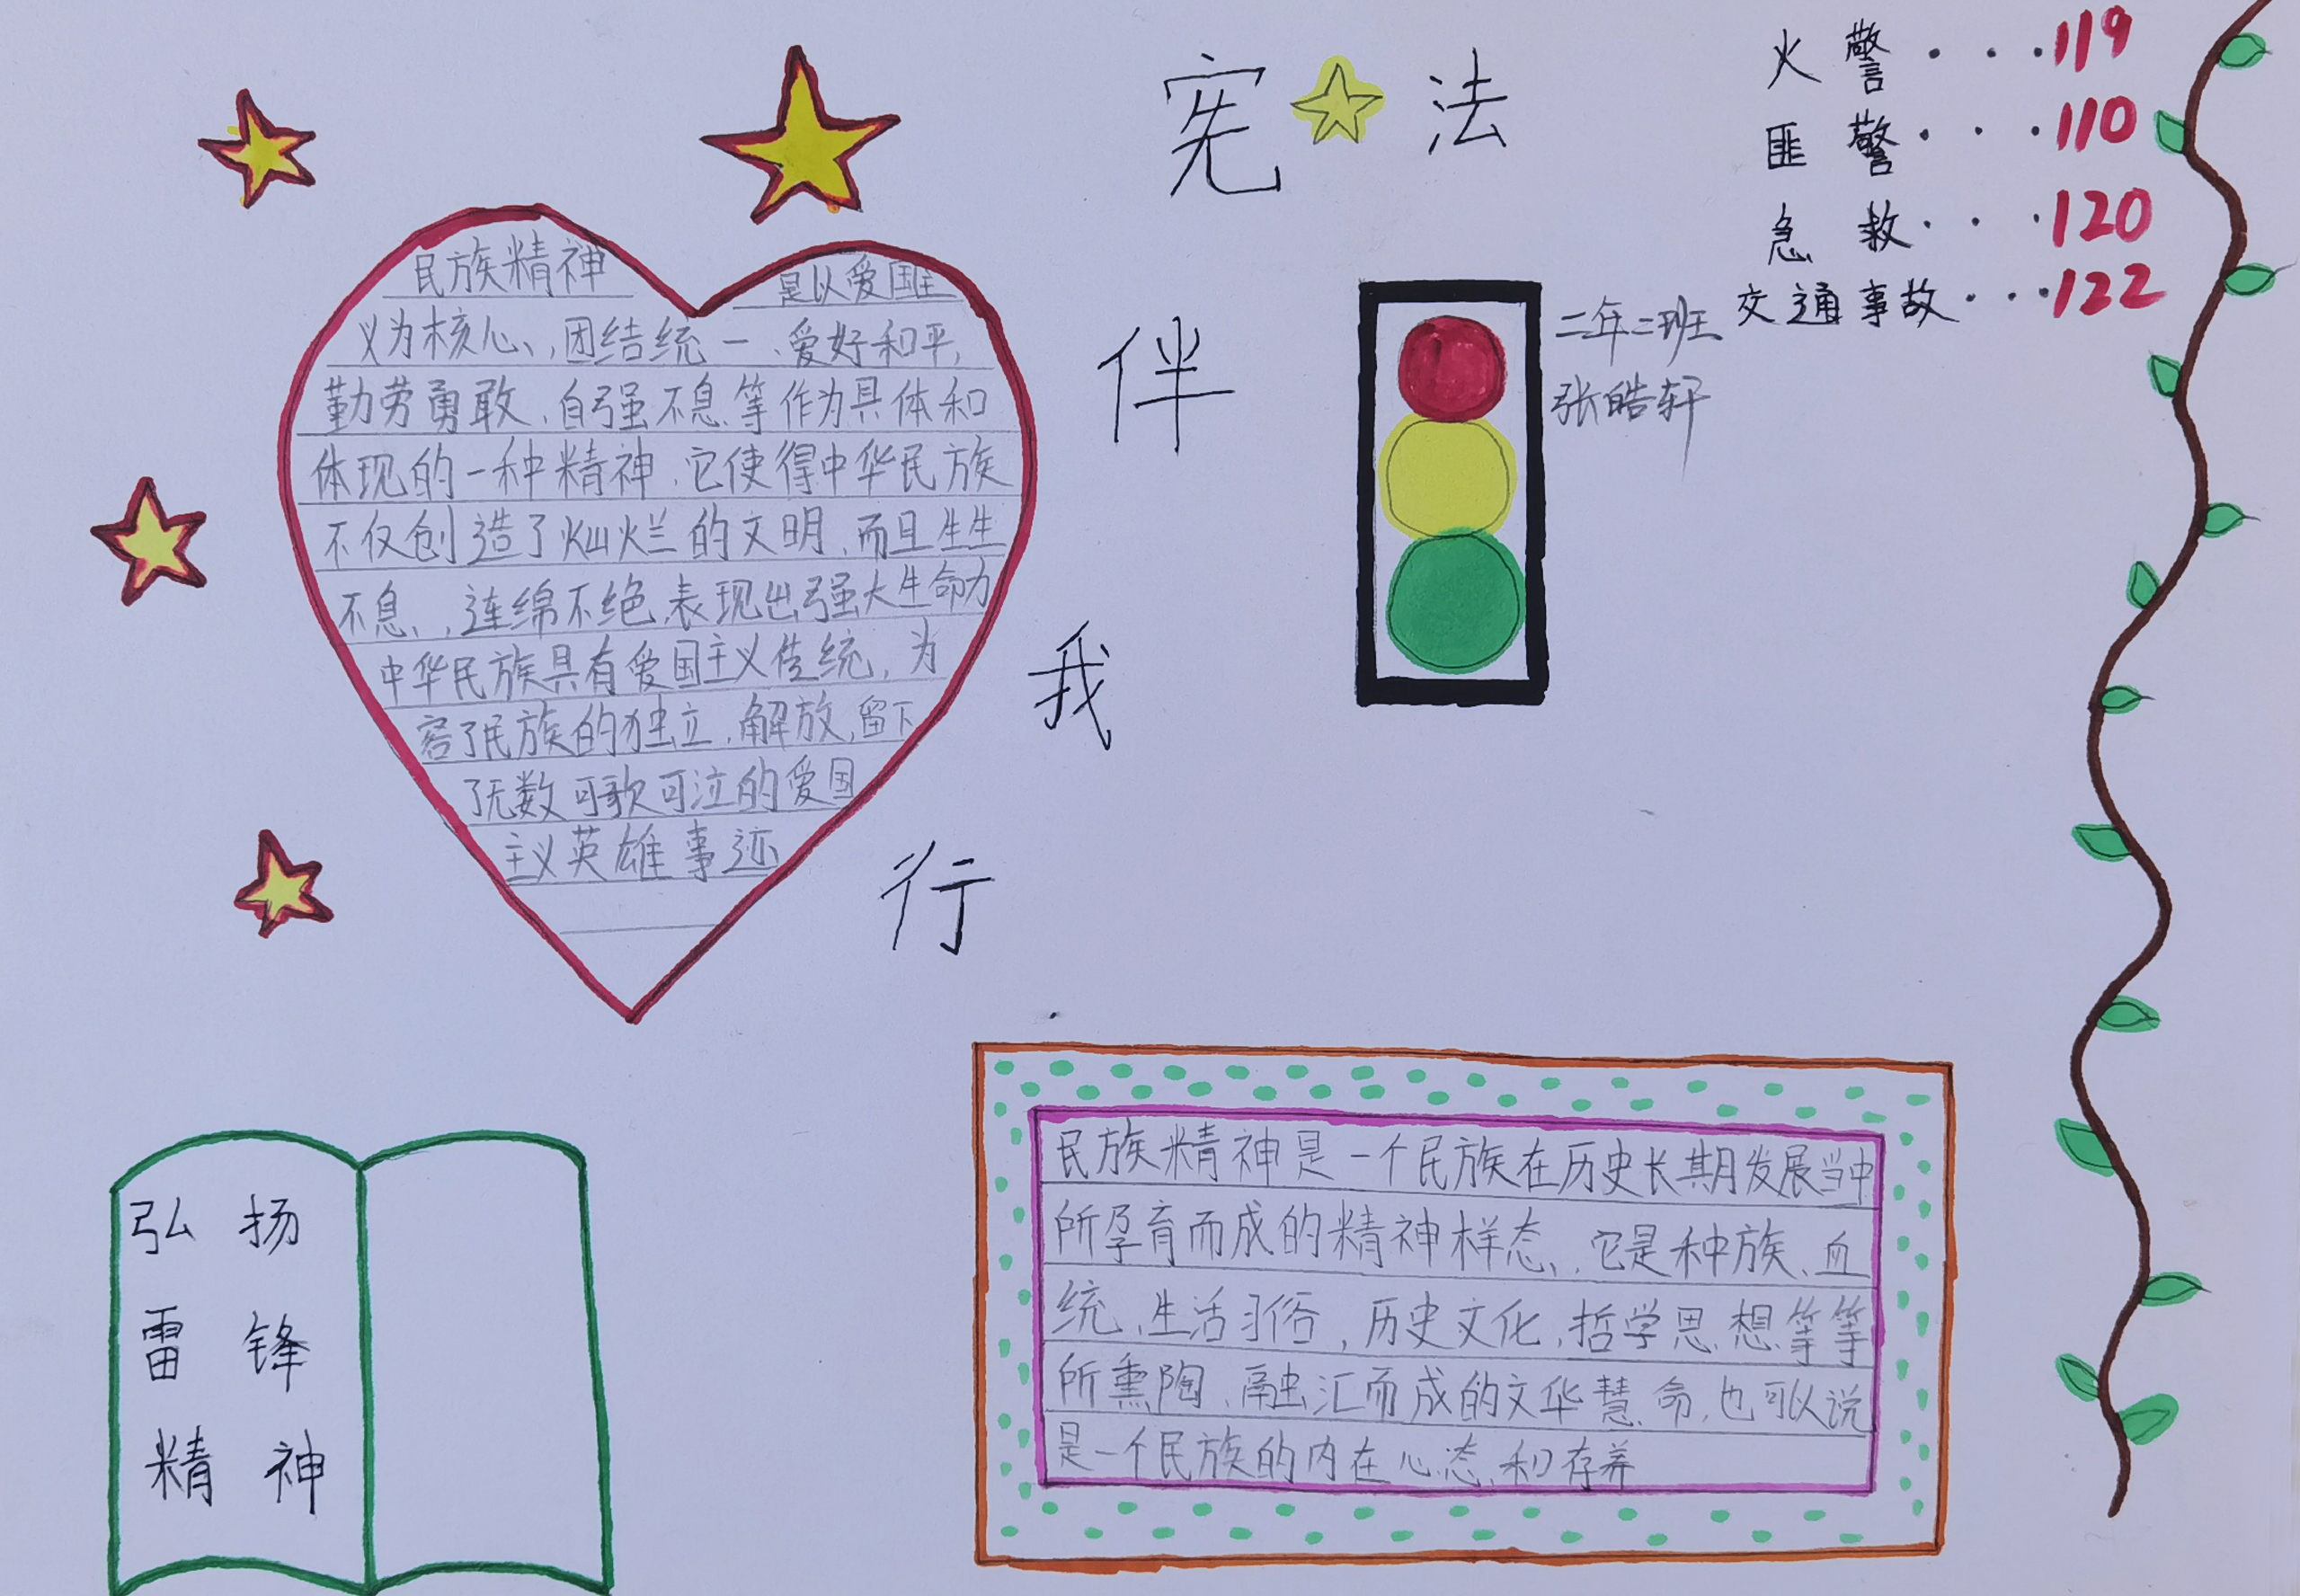 宪法
伴
我
行
火警···119
匪警···110
急救···120
交通事故···122
二年二班
张皓轩
民族精神 是以爱国主
义为核心，团结统一、爱好和平，
勤劳勇敢、自强不息等作为具体和
体现的一种精神.它使得中华民族
不仅创造了灿烂的文明、而且生生
不息，连绵不绝、表现出强大生命力
中华民族具有爱国主义传统，为
了民族的独立、解放，留下
了无数可歌可泣的爱国
主义英雄事迹
弘扬
雷锋
精神
民族精神是一个民族在历史长期发展当中
所孕育而成的精神样态，它是种族、血
统、生活习俗，历史文化，哲学思想等等
所熏陶、融汇而成的文华慧命，也可以说
是一个民族的内在心态和存养